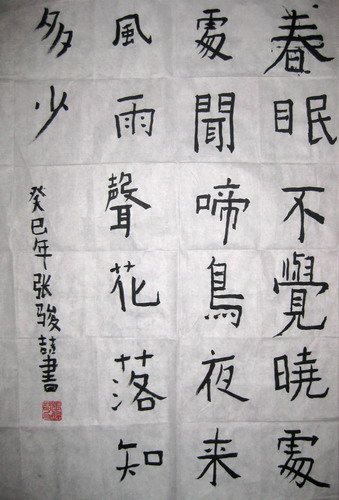 春眠不覺曉處
處聞啼鳥夜来
風雨聲花落知
多少
癸巳年张骏喆書